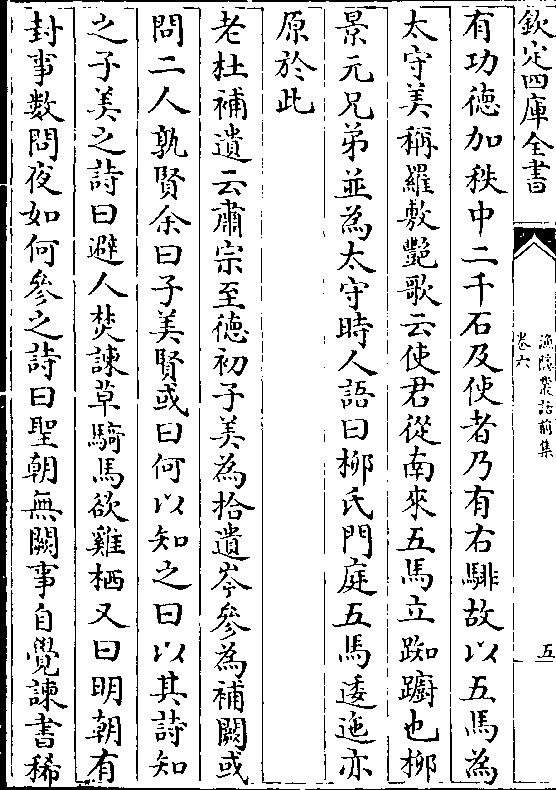 欽定四庫全書
漁隱叢話前集
卷六
五
有功德加秩中二千石及使者乃有右騑故以五馬為
太守美稱羅敷艷歌云使君從南來五馬立踟躕也柳
景元兄弟並為太守時人語曰柳氏門庭五馬逶迤亦
原於此
老杜補遺云肅宗至德初子美為拾遺岑參為補闕或
問二人孰賢余曰子美賢或曰何以知之曰以其詩知
之子美之詩曰避人焚諫草騎馬欲雞栖又曰明朝有
封事數問夜如何參之詩曰聖朝無闕事自覺諫書稀